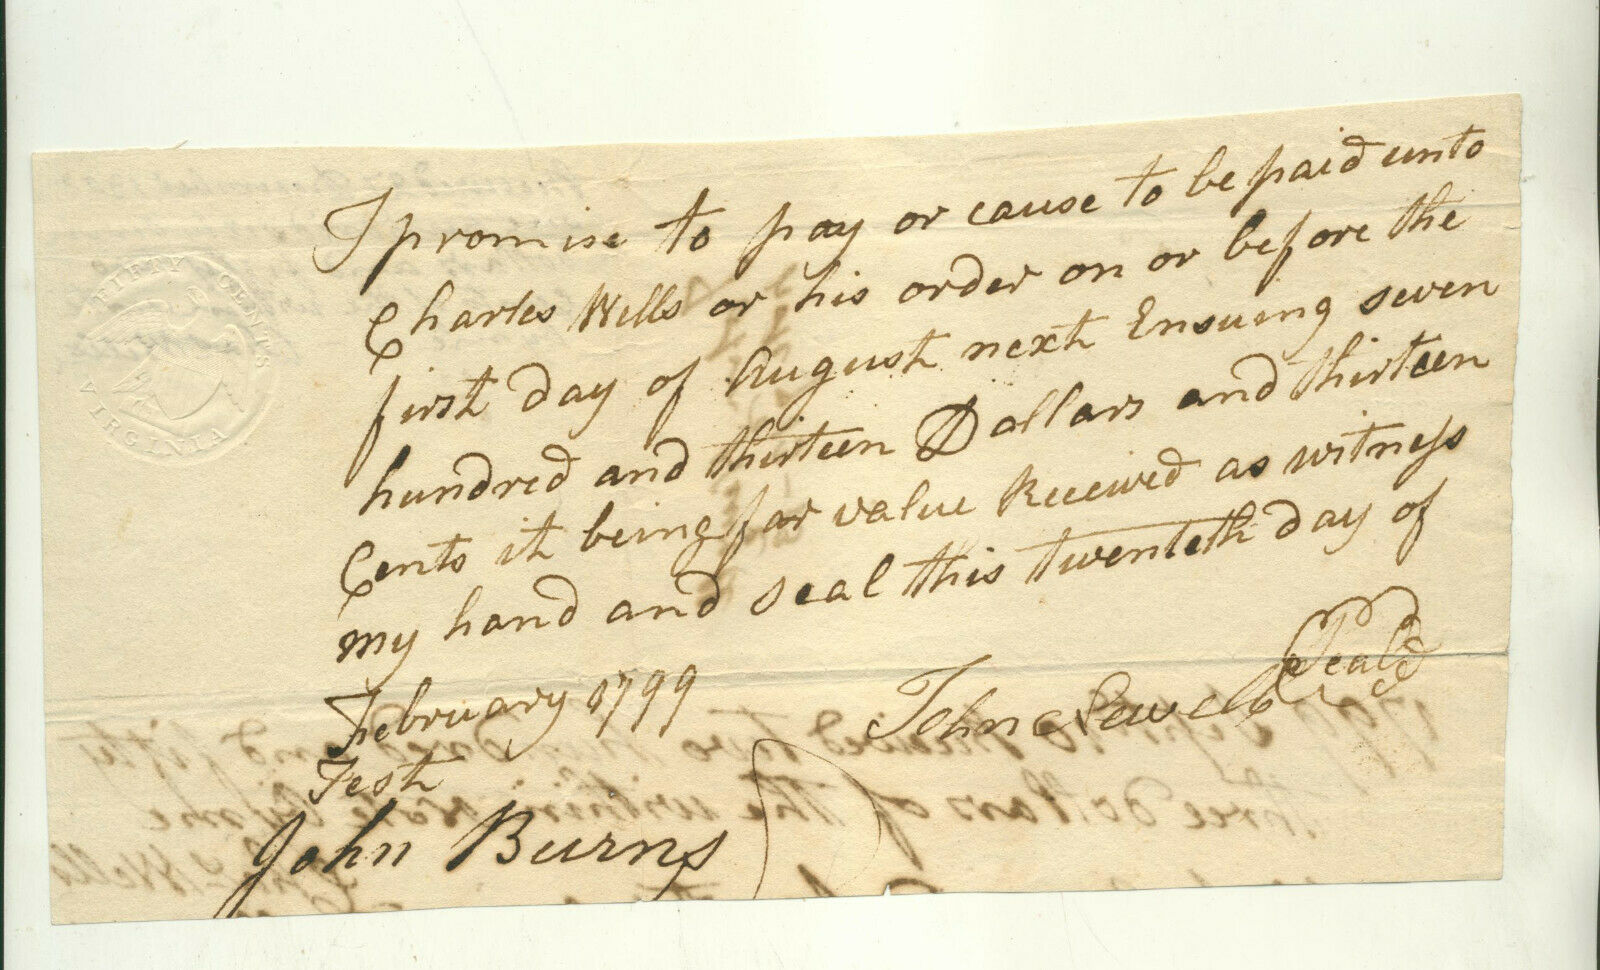 FIFTY CENTS
VIRGINIA
I promise to pay or cause to be paid unto
Charles Wells or his order on or before the
first day of August next Ensuing seven
hundred and thirteen Dollars and thirteen
Cents it being for value Received as witness
my hand and seal this twenteth day of
February 1799
John Sewell Seal'd
Test
John Burns